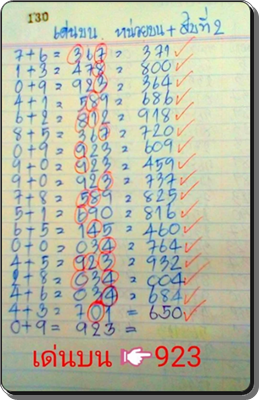 130
เด่นบน หน่วยบน + สิบที่ 2
7+6 = 367 = 371
1+3 = 478 = 800
0+9 = 923 = 364
4+1 = 589 = 686
6+2 = 812 = 918
8+5 = 367 = 720
0+9 = 923 = 609
9+0 = 923 = 459
9+0 = 923 = 737
7+8 = 589 = 825
5+1 = 690 = 816
6+5 = 145 = 460
0+0 = 034 = 764
4+5 = 923 = 932
1+8 = 034 = 004
4+6 = 034 = 684
4+3 = 701 = 650
0+9 = 923 =
เด่นบน 923